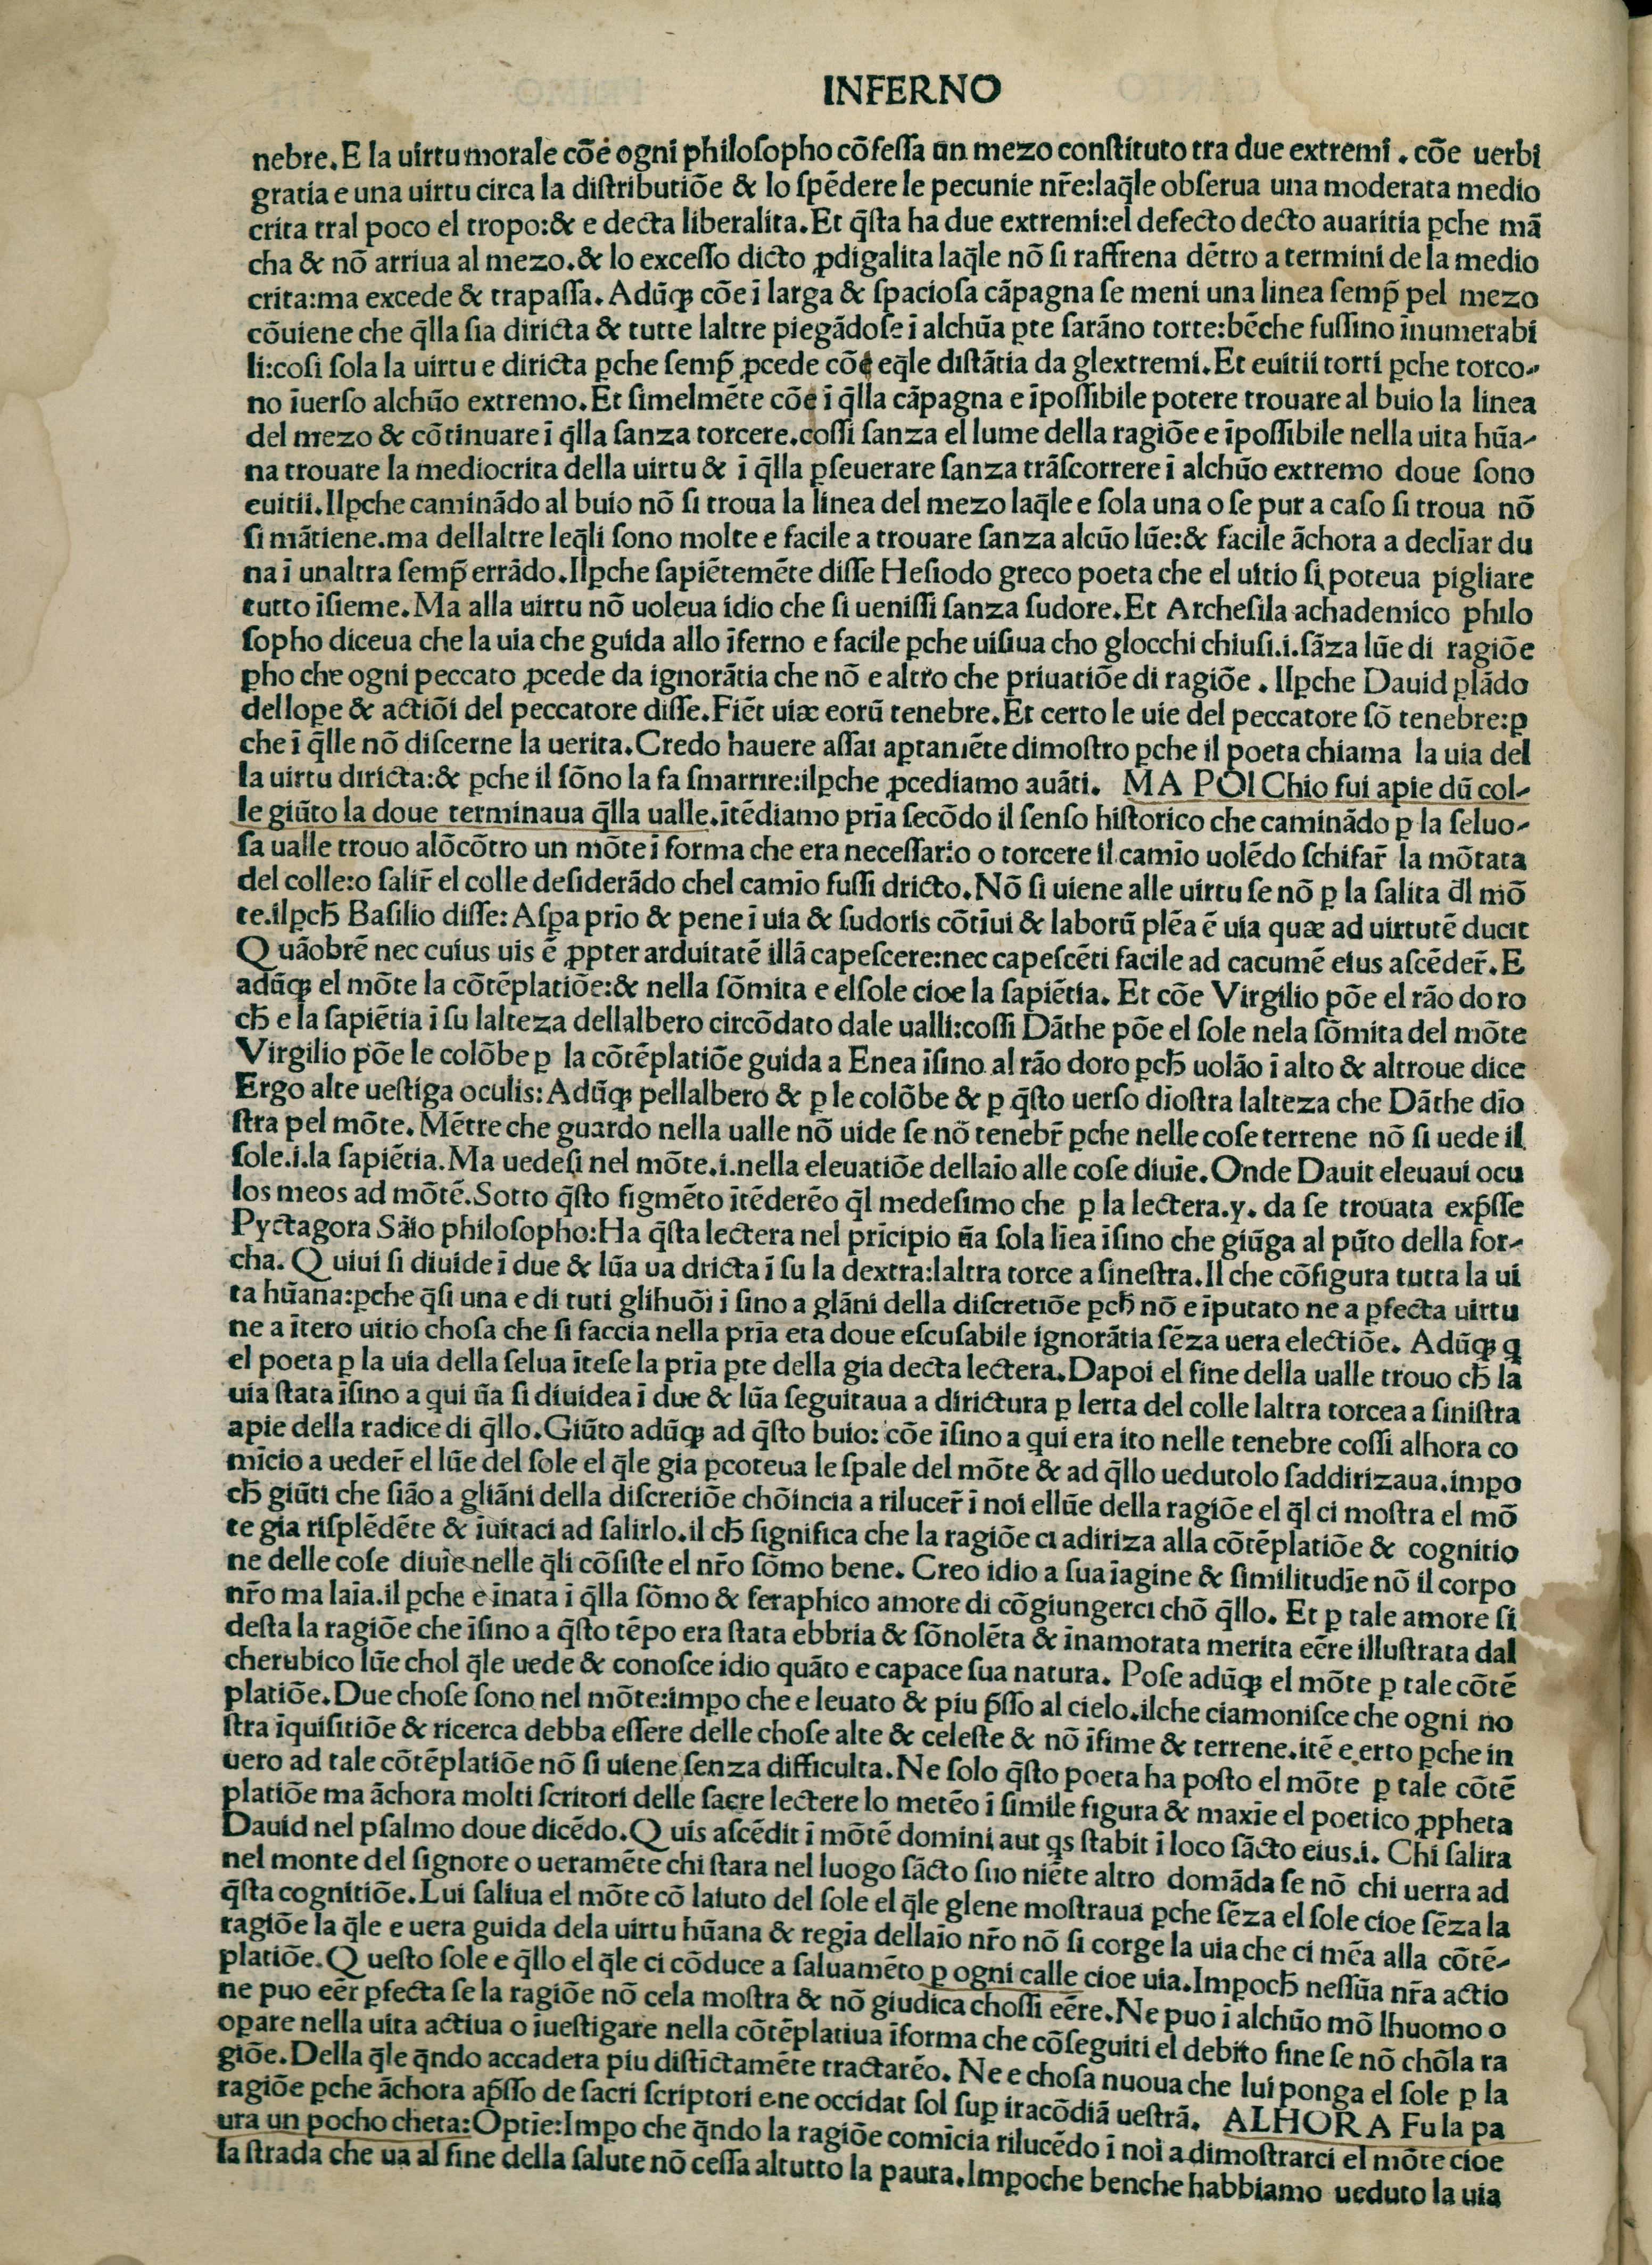 INFERNO
nebre.E la uirtu morale cōe ogni philosopho cōfessa un mezo constituto tra due extremi . cōe uerbi
gratia e una uirtu circa la distributiōe & lo spēdere le pecunie nr̄e:laq̄le obserua una moderata medio
crita tral poco el tropo:& e decta liberalita.Et q̄sta ha due extremi:el defecto decto auaritia ꝑche mā
cha & nō arriua al mezo.& lo excesso dicto ꝓdigalita laq̄le nō si raffrena dētro a termini de la medio
crita:ma excede & trapassa.Adūqꝫ cōe ī larga & spaciosa cāpagna se meni una linea semp̄ pel mezo
cōuiene che q̄lla sia diricta & tutte laltre piegādose ī alchūa ꝑte sarāno torte:bēche fussino īnumerabi
li:cosi sola la uirtu e diricta ꝑche semp̄ ꝓcede cōe eq̄le distātia da glextremi.Et euitii torti ꝑche torco-
no īuerso alchūo extremo.Et simelmēte cōe ī q̄lla cāpagna e īpossibile potere trouare al buio la linea
del mezo & cōtinuare ī q̄lla sanza torcere.cossi sanza el lume della ragiōe e īpossibile nella uita hūa-
na trouare la mediocrita della uirtu & ī q̄lla ꝑseuerare sanza trāscorrere ī alchūo extremo doue sono
euitii.Ilꝑche caminādo al buio nō si troua la linea del mezo laq̄le e sola una o se pur a caso si troua nō
si mātiene.ma dellaltre leq̄li sono molte e facile a trouare sanza alcūo lūe:& facile āchora a declīar du
na ī unaltra semp̄ errādo.Ilꝑche sapiētemēte disse Hesiodo greco poeta che el uitio si poteua pigliare
tutto īsieme.Ma alla uirtu nō uoleua idio che si uenissi sanza sudore.Et Archesila achademico philo
sopho diceua che la uia che guida allo īferno e facile ꝑche uisiua cho glocchi chiusi.i.sāza lūe di ragiōe
ꝑho che ogni peccato ꝓcede da ignorātia che nō e altro che priuatiōe di ragiōe . Ilꝑche Dauid ꝑlādo
dellope & actiōi del peccatore disse.Fiēt uiæ eorū tenebre.Et certo le uie del peccatore sō tenebre:ꝑ
che ī q̄lle nō discerne la uerita.Credo hauere assai aptamēte dimostro ꝑche il poeta chiama la uia del
la uirtu diricta:& ꝑche il sōno la fa smarrire:ilꝑche ꝓcediamo auāti. MA POI Chio fui apie dū col-
le giūto la doue terminaua q̄lla ualle.ītēdiamo prīa secōdo il senso historico che caminādo ꝑ la seluo-
sa ualle trouo alōcōtro un mōte ī forma che era necessario o torcere il camīo uolēdo schifar̄ la mōtata
del colle:o salir̄ el colle desiderādo chel camīo fussi dricto.Nō si uiene alle uirtu se nō ꝑ la salita d̄l mō
te.ilꝑcħ Basilio disse:Asꝑa prīo & pene ī uia & sudoris cōtīui & laborū plēa ē uia quæ ad uirtutē ducit
Quāobrē nec cuius uis ē ꝓpter arduitatē illā capescere:nec capescēti facile ad cacumē eius ascēder̄.E
adūqꝫ el mōte la cōtēplatiōe:& nella sōmita e elsole cioe la sapiētia. Et cōe Virgilio pōe el rāo do ro
cħ e la sapiētia ī su lalteza dellalbero circōdato dale ualli:cossi Dāthe pōe el sole nela sōmita del mōte
Virgilio pōe le colōbe ꝑ la cōtēplatiōe guida a Enea īsino al rāo doro ꝑcħ uolāo ī alto & altroue dice
Ergo alte uestiga oculis:Adūqꝫ pellalbero & ꝑ le colōbe & ꝑ q̄sto uerso diostra lalteza che Dāthe dīo
stra pel mōte. Mētre che guardo nella ualle nō uide se nō tenebr̄ ꝑche nelle cose terrene nō si uede il
sole.i.la sapiētia.Ma uedesi nel mōte.i.nella eleuatiōe dellaīo alle cose diuīe.Onde Dauit eleuaui ocu
los meos ad mōtē.Sotto q̄sto figmēto ītēderēo q̄l medesimo che ꝑ la lectera.y. da se trouata exp̄sse
Pyctagora Sāio philosopho:Ha q̄sta lectera nel prīcipio ūa sola līea īsino che giūga al pūto della for-
cha. Quiui si diuide ī due & lūa ua dricta ī su la dextra:laltra torce a sinestra.Il che cōfigura tutta la ui
ta hūana:ꝑche q̄si una e di tuti glihuōi ī sino a glāni della discretiōe ꝑcħ nō e īputato ne a ꝑfecta uirtu
ne a ītero uitio chosa che si faccia nella prīa eta doue escusabile ignorātia sēza uera electiōe. Adūqꝫ q
el poeta ꝑ la uia della selua ītese la prīa ꝑte della gia decta lectera.Dapoi el fine della ualle trouo cħ la
uia stata īsino a qui ūa si diuidea ī due & lūa seguitaua a dirictura ꝑ lerta del colle laltra torcea a sinistra
apie della radice di q̄llo.Giūto adūqꝫ ad q̄sto buio: cōe īsino a qui era ito nelle tenebre cossi alhora co
mīcio a ueder̄ el lūe del sole el q̄le gia ꝑcoteua le spale del mōte & ad q̄llo uedutolo saddirizaua.impo
cħ giūti che siāo a gliāni della discretiōe chōincia a rilucer̄ ī noi ellūe della ragiōe el q̄l ci mostra el mō
te gia risplēdēte & īuitaci ad salirlo.il cħ significa che la ragiōe ci adiriza alla cōtēplatiōe & cognitio
ne delle cose diuīe nelle q̄li cōsiste el nr̄o sōmo bene. Creo idio a sua īagine & similitudīe nō il corpo
nr̄o ma laīa.il ꝑche e īnata ī q̄lla sōmo & feraphico amore di cōgiungerci chō q̄llo. Et ꝑ tale amore si
desta la ragiōe che īsino a q̄sto tēpo era stata ebbria & sōnolēta & īnamorata merita eēre illustrata dal
cherubico lūe chol q̄le uede & conosce idio quāto e capace sua natura. Pose adūqꝫ el mōte ꝑ tale cōtē
platiōe.Due chose sono nel mōte:imꝑo che e leuato & piu p̄sso al cielo.ilche ciamonisce che ogni no
stra īquisitiōe & ricerca debba essere delle chose alte & celeste & nō īfime & terrene.itē e erto ꝑche in
uero ad tale cōtēplatiōe nō si uiene senza difficulta.Ne solo q̄sto poeta ha posto el mōte ꝑ tale cōtē
platiōe ma āchora molti scritori delle sacre lectere lo metēo ī simile figura & maxīe el poetico ꝓpheta
Dauid nel psalmo doue dicēdo.Quis ascēdit ī mōtē domini aut qs stabit ī loco sācto eius.i. Chi salira
nel monte del signore o ueramēte chi stara nel luogo sācto suo niēte altro domāda se nō chi uerra ad
q̄sta cognitiōe.Lui saliua el mōte cō laiuto del sole el q̄le glene mostraua ꝑche sēza el sole cioe sēza la
ragiōe la q̄le e uera guida dela uirtu hūana & regīa dellaīo nr̄o nō si corge la uia che ci mēa alla cōtē-
platiōe.Questo sole e q̄llo el q̄le ci cōduce a saluamēto ꝑ ogni calle cioe uia.Imꝑocħ nessūa nr̄a actio
ne puo eēr ꝑfecta se la ragiōe nō cela mostra & nō giudica chossi eēre.Ne puo ī alchūo mō lhuomo o
oꝑare nella uita actiua o īuestigare nella cōtēplatiua īforma che cōseguiti el debito fine se nō chōla ra
giōe.Della q̄le q̄ndo accadera piu distīctamēte tractarēo. Ne e chosa nuoua che lui ponga el sole ꝑ la
ragiōe ꝑche āchora ap̄sso de sacri scriptori e.ne occidat sol suꝑ iracōdiā uestrā. ALHORA Fu la pa
ura un pocho cheta:Optīe:Impo che q̄ndo la ragiōe comīcia rilucēdo ī noi a dimostrarci el mōte cioe
la strada che ua al fine della salute nō cessa altutto la paura.Imꝑoche benche habbiamo ueduto la uia